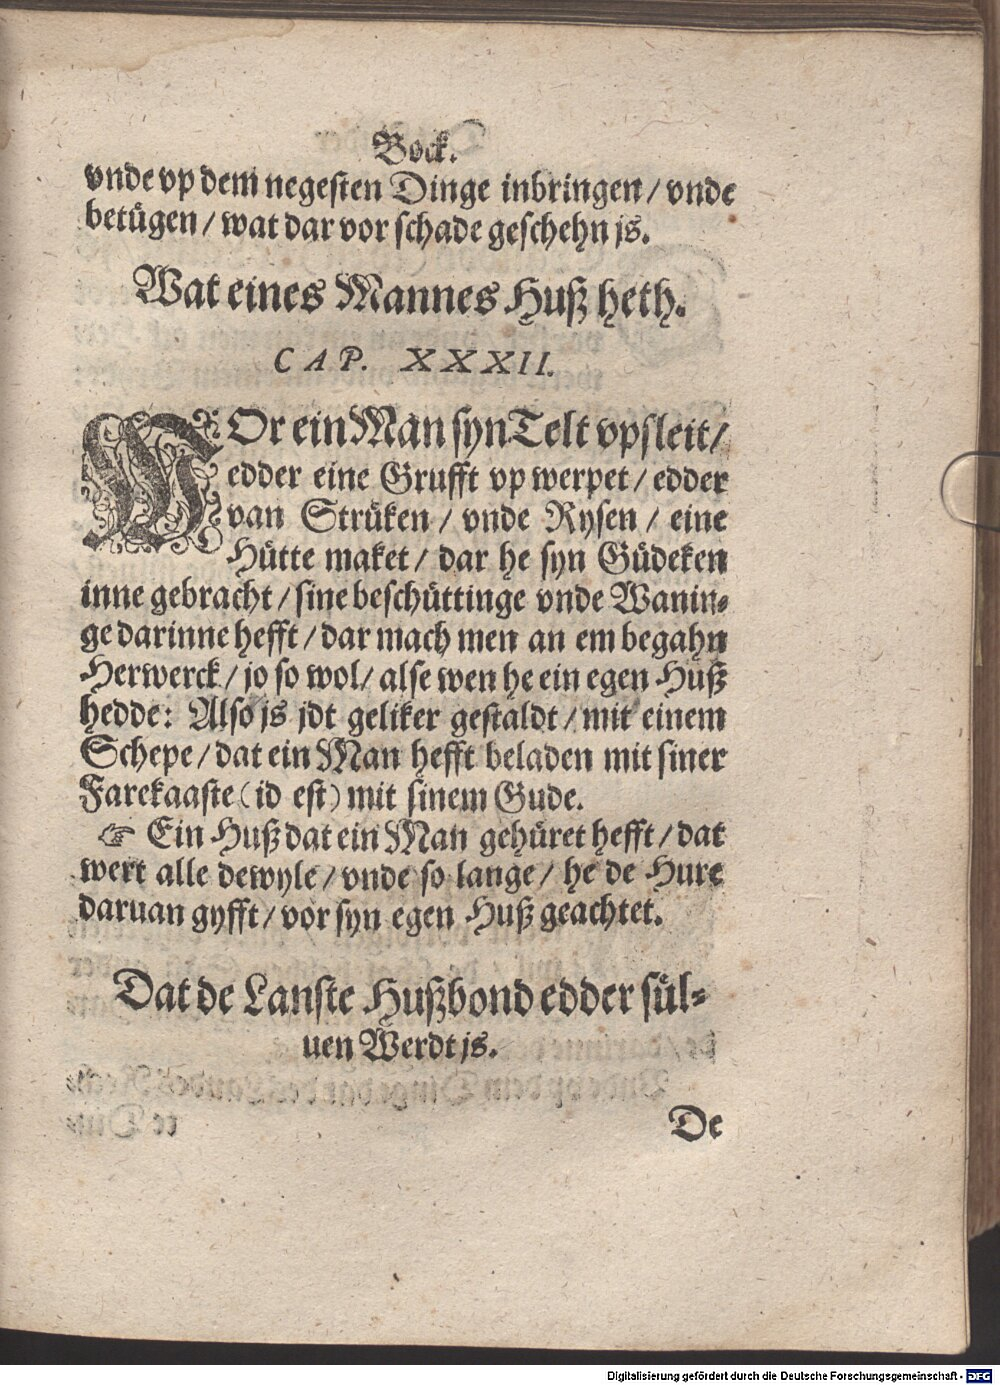 Bock.
vnde vp dem negesten Dinge inbringen / vnde
betügen / wat dar vor schade geschehn js.
Wat eines Mannes Huß heth.
CAP. XXXII.
WOr ein Man syn Telt vpsleit /
edder eine Grufft vp werpet / edder
van Strüken / vnde Rysen / eine
Hütte maket / dar he syn Güdeken
inne gebracht / sine beschüttinge vnde Wanin⸗
ge darinne hefft / dar mach men an em begahn
Herwerck / jo so wol / alse wen he ein egen Huß
hedde: Also js jdt geliker gestaldt / mit einem
Schepe / dat ein Man hefft beladen mit siner
Farekaaste (id est) mit sinem Gude.
☞ Ein Huß dat ein Man gehüret hefft / dat
wert alle dewyle / vnde so lange / he de Hure
daruan gyfft / vor syn egen Huß geachtet.
Dat de Lanste Hußbond edder sül⸗
uen Werdt js.
De
Digitalisierung gefördert durch die Deutsche Forschungsgemeinschaft - DFG